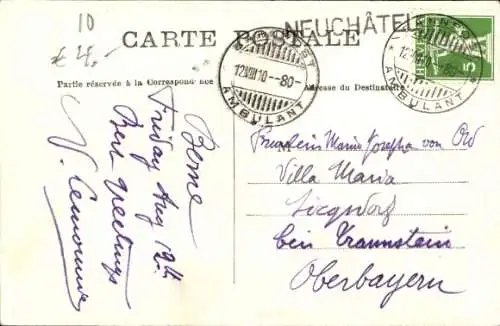 10
£ 4.-
CARTE POSTALE
NEUCHÂTEL
BAHNPOST
12.VIII.10.-80-
AMBULANT
BAHNPOST
12.VIII.10.-80-
AMBULANT
5
Partie réservée à la Correspondance
Adresse du Destinataire
Berne
Friday Aug 12th
Best greetings
V.
Fräulein Maria Josepha von Ord
M
Villa Maria
Siegsdorf
bei Traunstein
Oberbayern